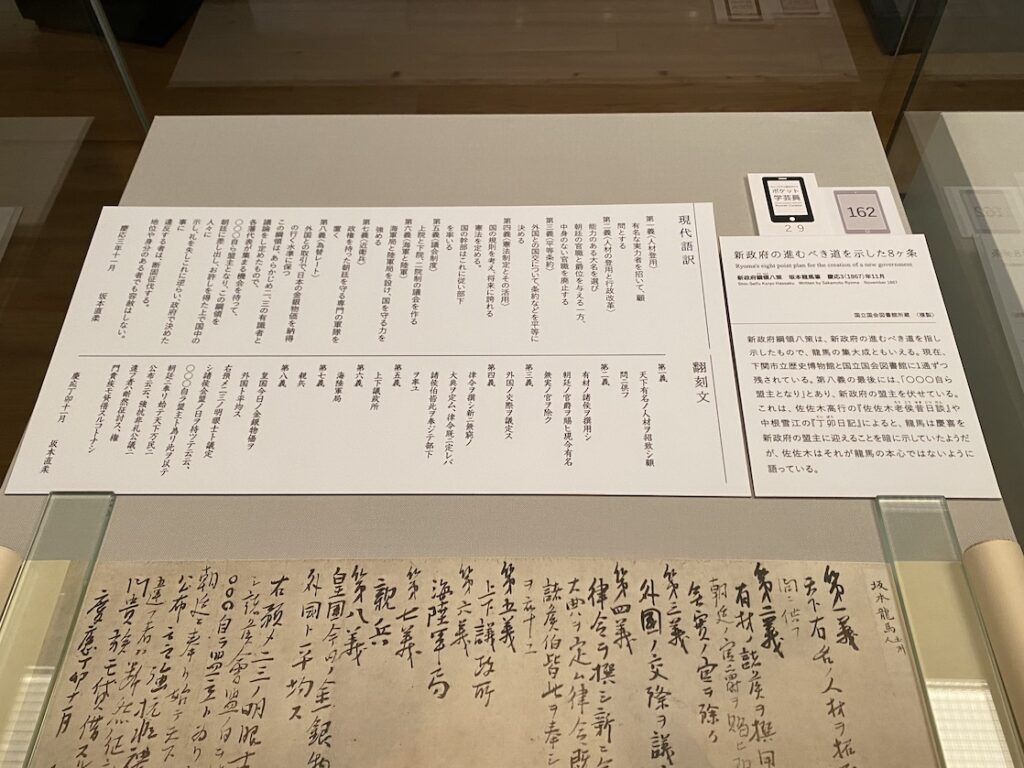 現代語訳
第一義(人材登用)
有名な実力者を招いて、顧
問とする
第二義(人材の登用と行政改革)
能力のある大名を選び
朝廷の官職と爵位を与える一方、
中身のない官職を廃止する
第三義(平等条約)
外国との国交について条約などを平等に
決める
第四義(憲法制定とその活用)
国の規則を考え、将来に誇れる
憲法を定める。
国の幹部はこれに従い部下
を率いる
第五義(議会制度)
上院と下院、二院制の議会を作る
第六義(海軍と陸軍)
海軍局と陸軍局を設け、国を守る力を
強める
第七義(近衛兵)
政権を持った朝廷を守る専門の軍隊を
置く
第八義(為替レート)
外国との取引で、日本の金銀物価を納得
の行く水準に保つ
この綱領は、あらかじめ二、三の有識者と
議論をし定めたもので、
各藩代表が集まる機会を待って、
〇〇〇自ら盟主となり、この綱領を
朝廷に差し出し、お許しを得た上で国中の
人々に
示し、礼を失しこれに逆らい、政府で決めた
事に
違反する者は、断固征伐する。
地位や身分のある者でも容赦はしない。
慶応三年十一月
坂本直柔
翻刻文
第一義
天下有名ノ人材ヲ招致シ顧
問ニ供フ
第二義
有材ノ諸侯ヲ撰用シ
朝廷ノ官爵ヲ賜ヒ現今有名
無実ノ官ヲ除ク
第三義
外国ノ交際ヲ議定ス
第四義
律令ヲ撰シ新ニ無窮ノ
大典ヲ定ム、律令既ニ定レバ
諸侯伯皆此ヲ奉シテ部下
ヲ率ユ
第五義
上下議政所
第六義
海陸軍局
第七義
親兵
第八義
皇国今日ノ金銀物価ヲ
外国ト平均ス
右預メ二三ノ明眼士ト議定
シ諸侯会盟ノ日ヲ待ツテ云云、
〇〇〇自ラ盟主ト為リ此ヲ以テ
朝廷ニ奉リ始テ天下万民ニ
公布云云、強抗非礼公議ニ
違フ者ハ断然征討ス、権
門貴族モ貸借スルコトナシ
慶応丁卯十一月
坂本直柔
ポケット
学芸員
29
162
新政府の進むべき道を示した8ヶ条
Ryoma's eight point plan for the creation of a new government
新政府綱領八策 坂本龍馬筆 慶応3(1867)年11月
Shin-Seifu Koryo Hassaku Written by Sakamoto Ryoma November 1867
国立国会図書館所蔵 (複製)
新政府綱領八策は、新政府の進むべき道を指し
示したもので、龍馬の集大成ともいえる。現在、
下関市立歴史博物館と国立国会図書館に1通ずつ
残されている。第八義の最後には、「〇〇〇自ら
盟主となり」とあり、新政府の盟主を伏せている。
これは、佐佐木高行の『佐佐木老侯昔日談』や
中根雪江の『丁卯日記』によると、龍馬は慶喜を
新政府の盟主に迎えることを暗に示していたようだ
が、佐佐木はそれが龍馬の本心ではないように
語っている。
坂本龍馬
第一義
天下有名ノ人材ヲ招
問ニ供フ
第二義
有材ノ諸侯ヲ撰用
朝廷ノ官爵ヲ賜ヒ現
無実ノ官ヲ除ク
第三義
外国ノ交際ヲ議
第四義
律令ヲ撰シ新ニ
大典ヲ定ム律令既
諸侯伯皆此ヲ奉シ
ヲ率ユ
第五義
上下議政所
第六義
海陸軍局
第七義
親兵
第八義
皇国今日ノ金銀物
外国ト平均ス
右預メ二三ノ明眼士
シ諸侯会盟ノ日
〇〇〇自ラ盟主ト為リ
朝廷ニ奉リ始テ天下
公布云云強抗非礼
違フ者ハ断然征
門貴族モ貸借スル
慶應丁卯十一月